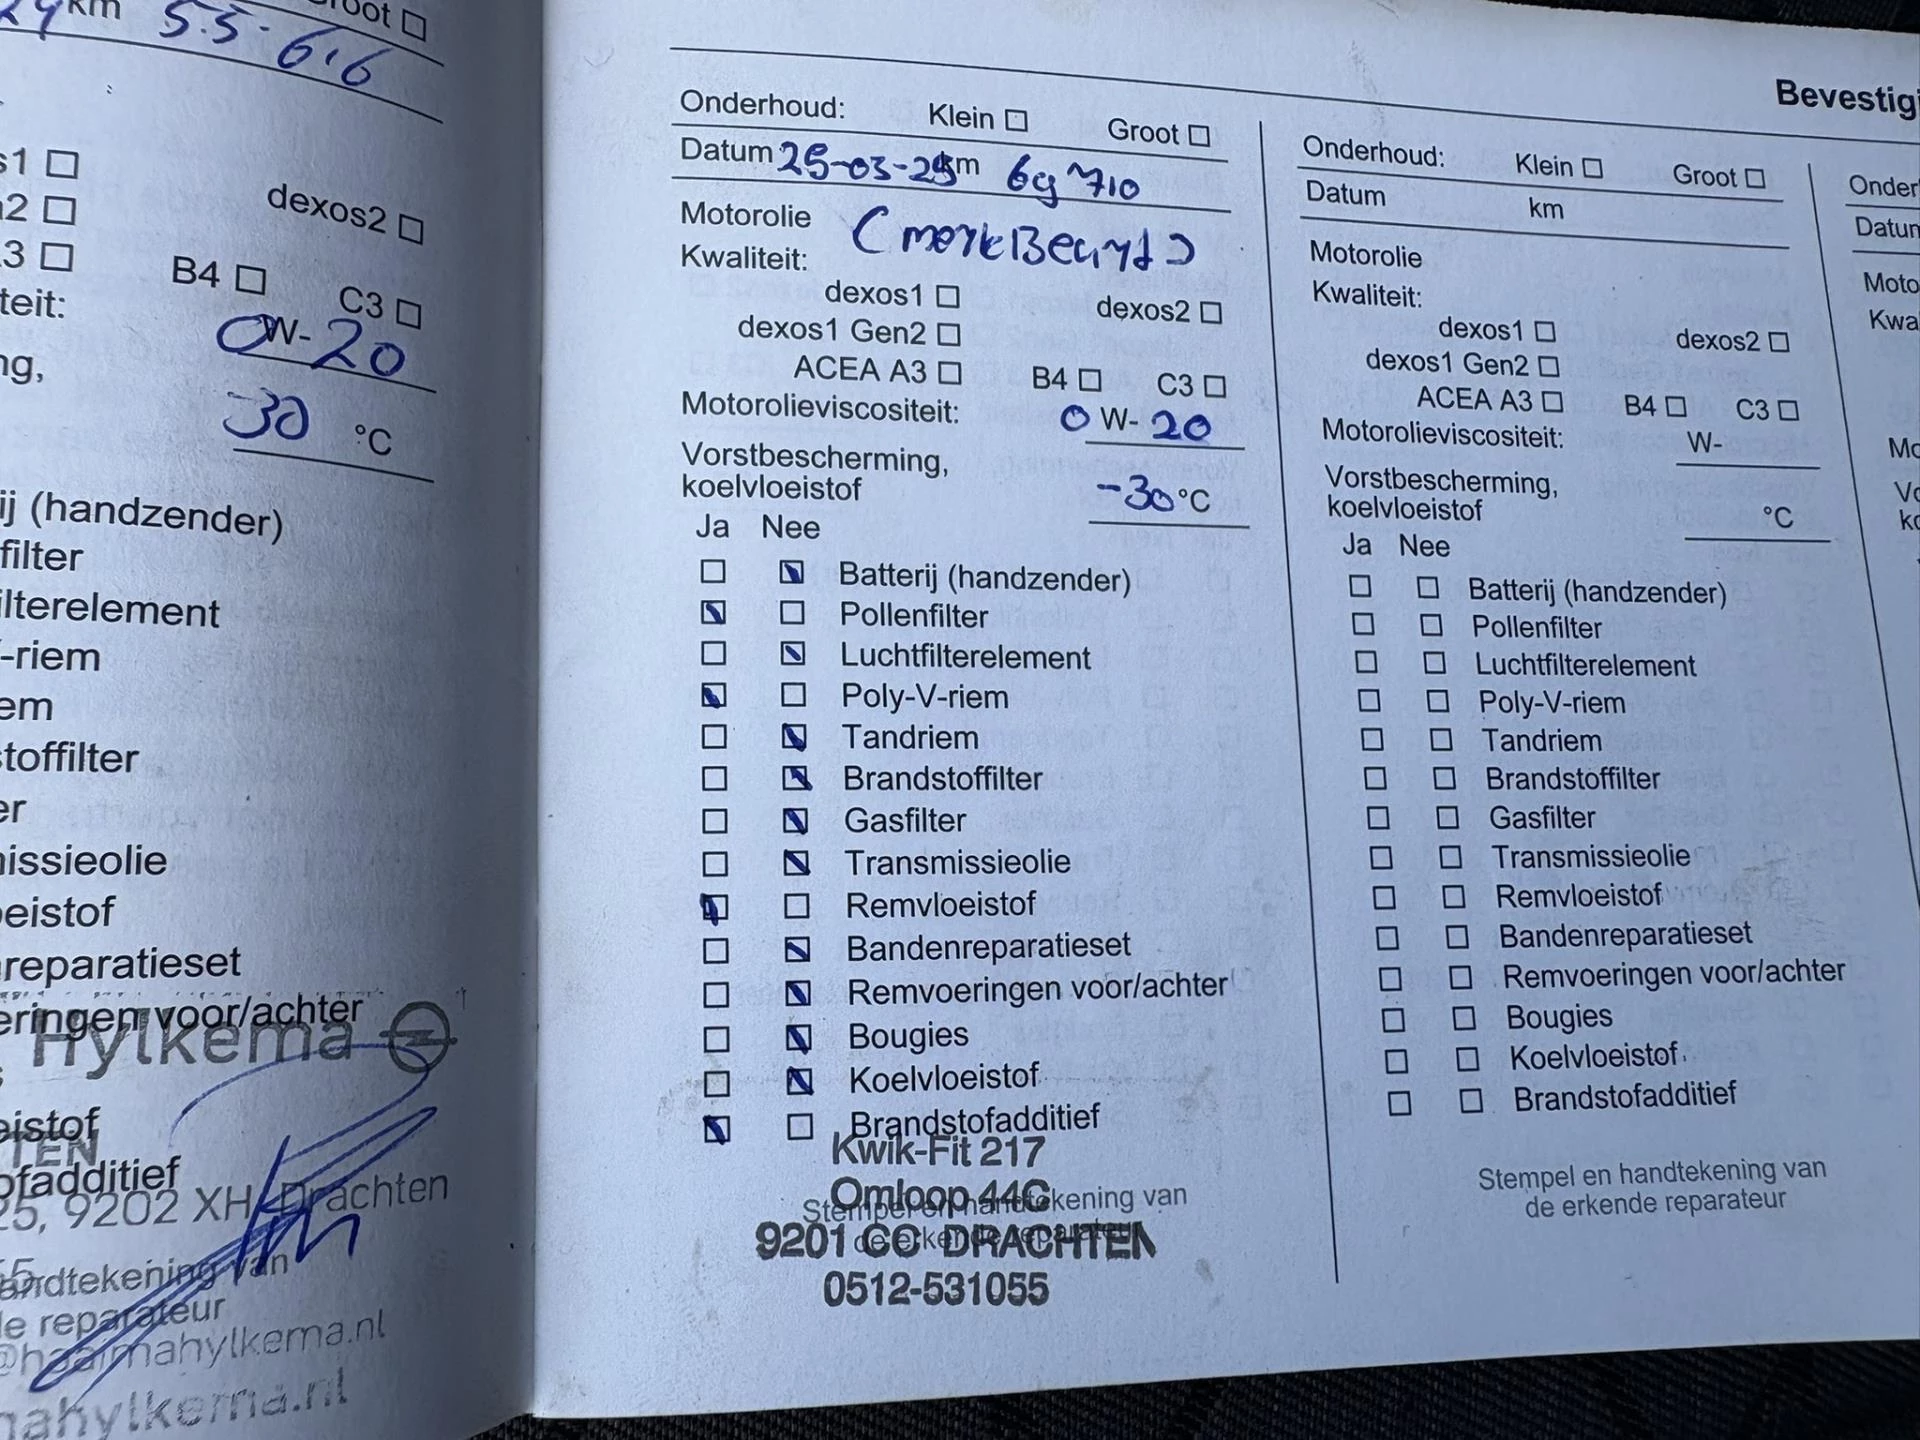 24 km 55.616
root
s1
dexos2
a2
.3 B4 C3
teit: 0W-20
ng,
30 °C
ij (handzender)
filter
ilterelement
-riem
em
toffilter
er
nissieolie
oeistof
nreparatieset
eringen voor/achter
Hylkema
eistof
TEN
ofadditief
25, 9202 XH Drachten
andtekening van
de reparateur
@haaimahylkema.nl
mahylkema.nl
Bevestigi
Onderhoud: Klein Groot
Datum 25-03-25 km 69710
Motorolie
Kwaliteit:
dexos1 dexos2
dexos1 Gen2
ACEA A3 B4 C3
Motorolieviscositeit: 0 W- 20
Vorstbescherming,
koelvloeistof -30 °C
Ja Nee
Batterij (handzender)
Pollenfilter
Luchtfilterelement
Poly-V-riem
Tandriem
Brandstoffilter
Gasfilter
Transmissieolie
Remvloeistof
Bandenreparatieset
Remvoeringen voor/achter
Bougies
Koelvloeistof
Brandstofadditief
Kwik-Fit 217
Omloop 44C
Stempel en handtekening van
9201 CC DRACHTEN
de erkende reparateur
0512-531055
Onderhoud: Klein Groot
Datum km
Motorolie
Kwaliteit:
dexos1 dexos2
dexos1 Gen2
ACEA A3 B4 C3
Motorolieviscositeit: W-
Vorstbescherming,
koelvloeistof °C
Ja Nee
Batterij (handzender)
Pollenfilter
Luchtfilterelement
Poly-V-riem
Tandriem
Brandstoffilter
Gasfilter
Transmissieolie
Remvloeistof
Bandenreparatieset
Remvoeringen voor/achter
Bougies
Koelvloeistof
Brandstofadditief
Stempel en handtekening van
de erkende reparateur
Onder
Datum
Moto
Kwa
Mo
Vo
ko